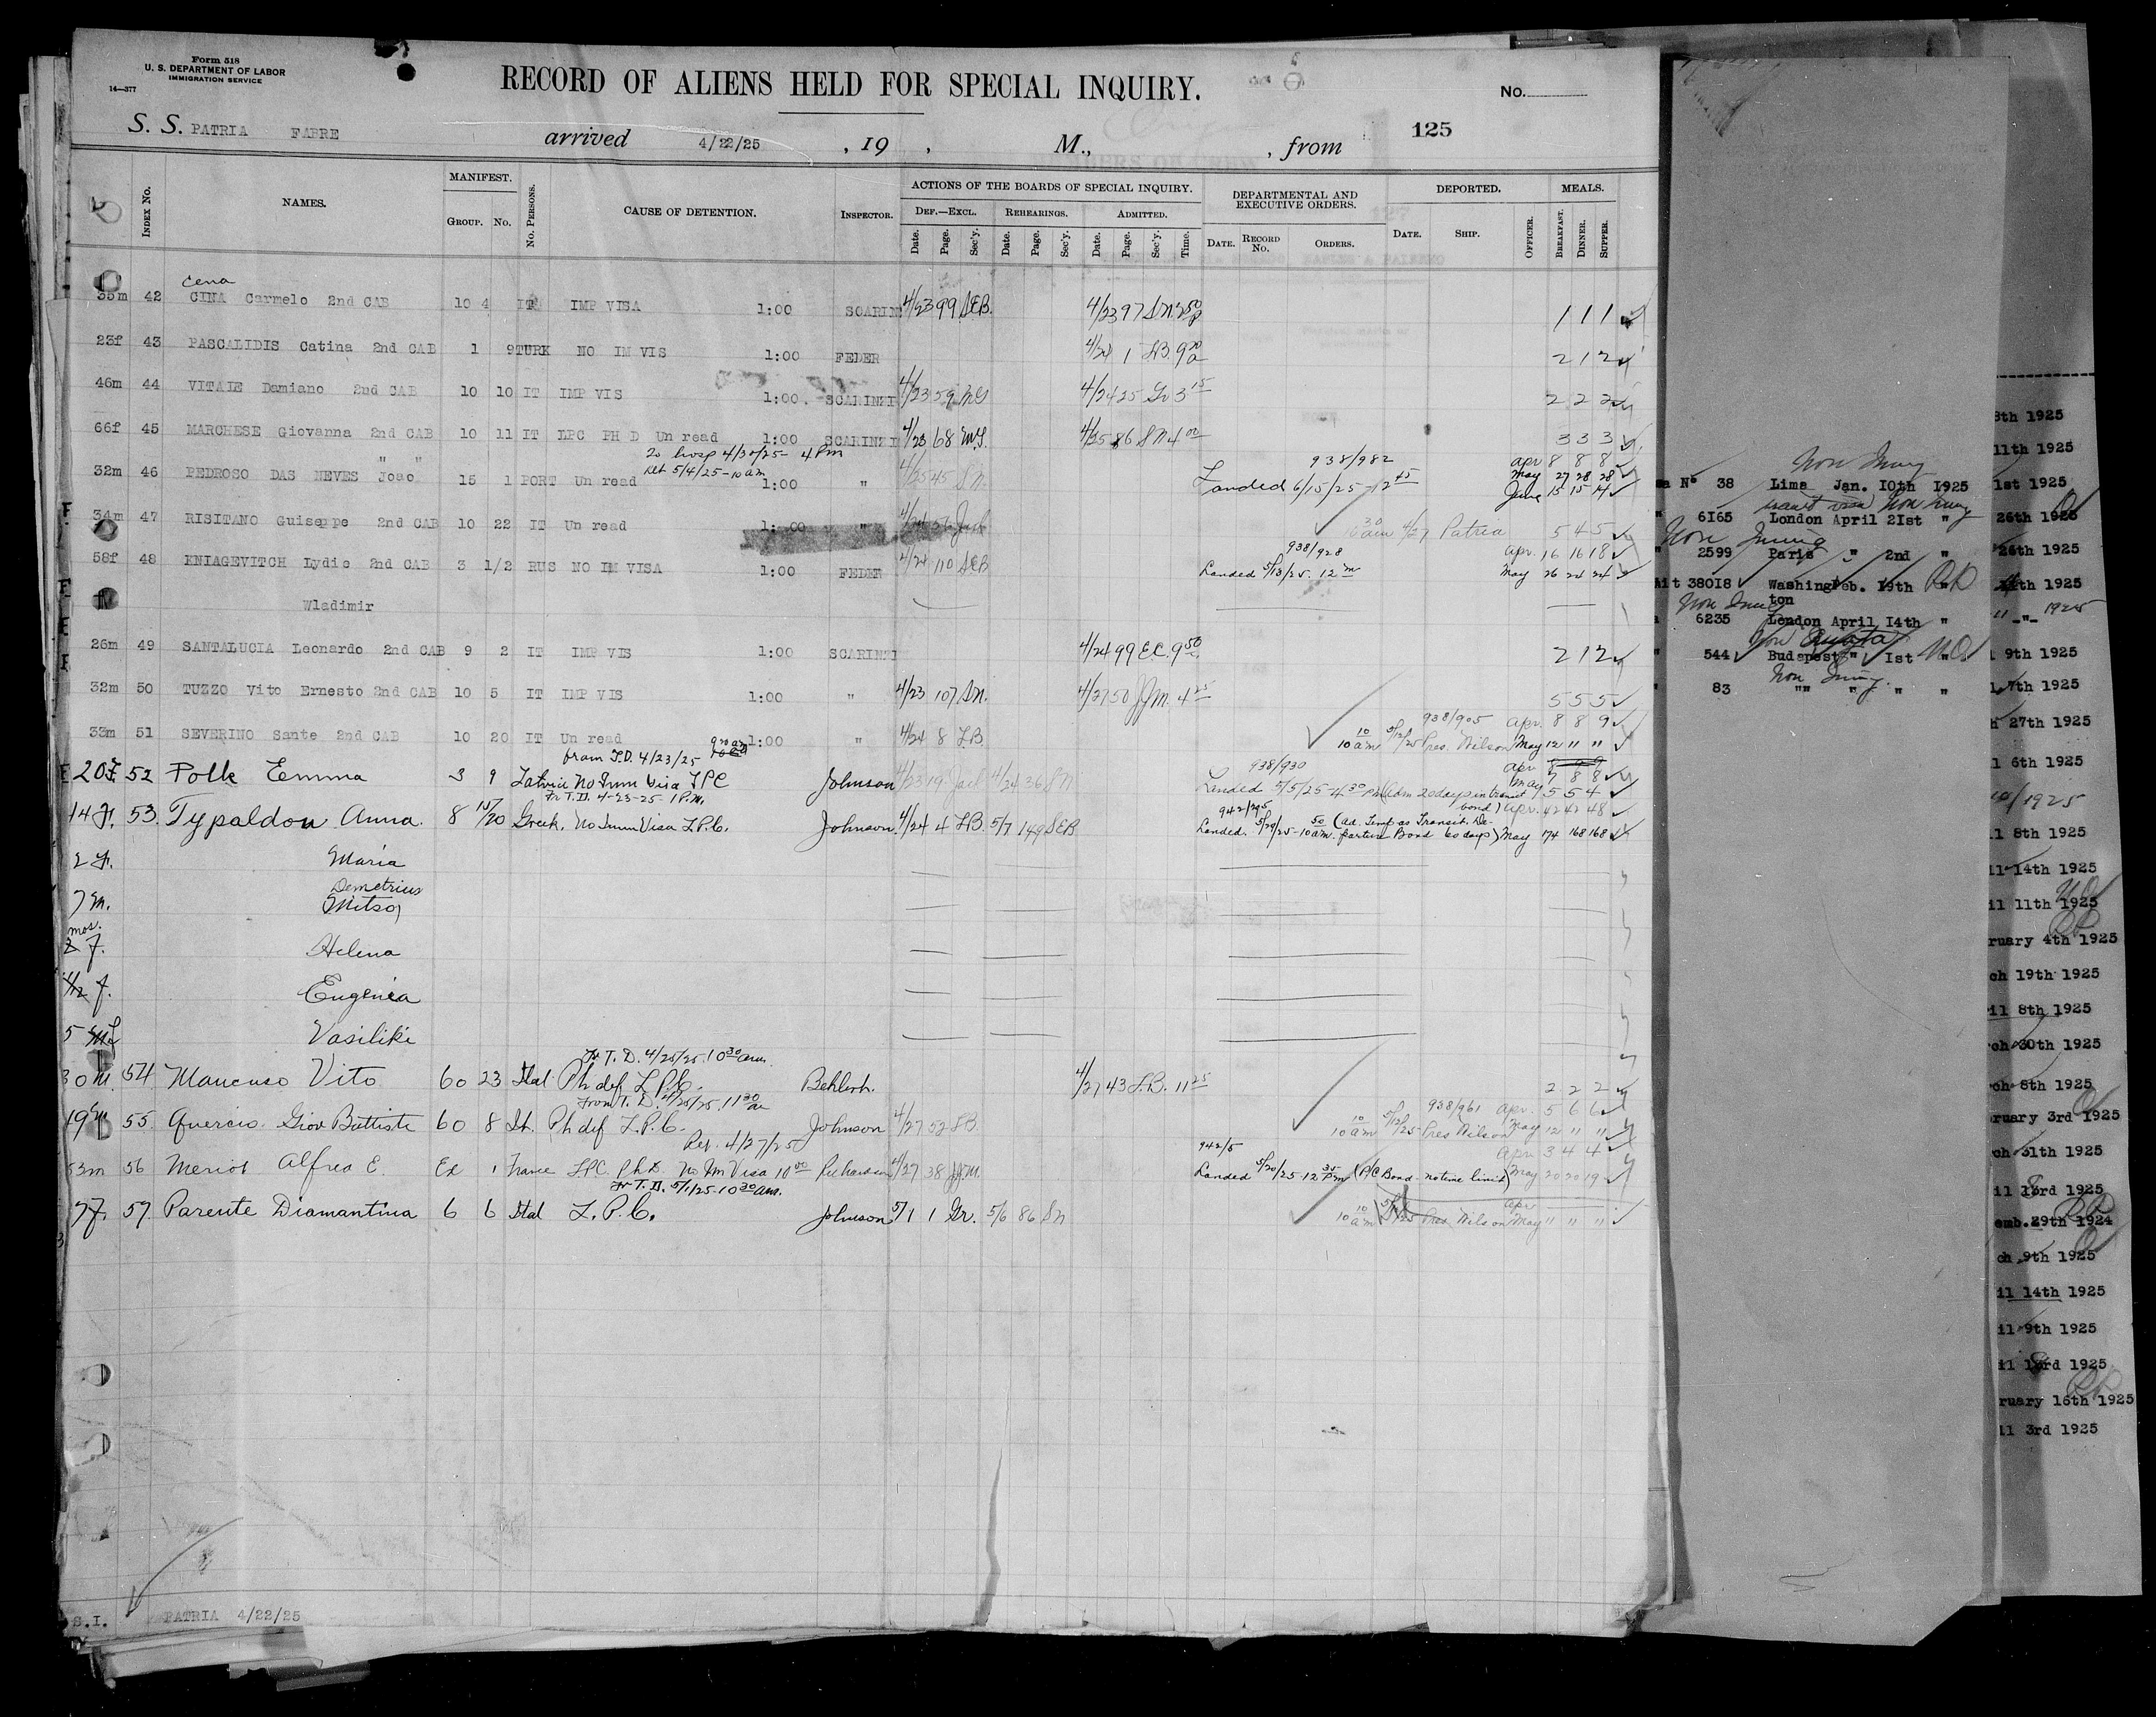 Form 518
U. S. DEPARTMENT OF LABOR
IMMIGRATION SERVICE
14—377
RECORD OF ALIENS HELD FOR SPECIAL INQUIRY.
No.
S. S. PATRIA FABRE arrived 4/22/25 , 19 , M., , from 125
Index No. NAMES. MANIFEST. Group. No. No. Persons. CAUSE OF DETENTION. Inspector. ACTIONS OF THE BOARDS OF SPECIAL INQUIRY. DEPARTMENTAL AND EXECUTIVE ORDERS. DEPORTED. MEALS.
Def.—Excl. Rehearings. Admitted.
Date. Page. Sec'y. Date. Page. Sec'y. Date. Page. Sec'y. Time. Date. Record No. Orders. Date. Ship. Officer. Breakfast. Dinner. Supper.
Cena
35m 42 CINA Carmelo 2nd CAB 10 4 IT IMP VISA 1:00 SCARIN 4/23 99 SEB. 4/23 97 SN. 1 1 1
23f 43 PASCALIDIS Catina 2nd CAB 1 9 TURK NO IM VIS 1:00 FEDER 4/24 1 LB. 9 20 a 2 1 2
46m 44 VITALE Damiano 2nd CAB 10 10 IT IMP VIS 1:00 SCARINZI 4/23 59 4/24 25 Gr 3 15 2 2 2
66f 45 MARCHESE Giovanna 2nd CAB 10 11 IT LPC PH D Un read 1:00 SCARINZI 4/23 68 4/25 86 SN 4 00 3 3 3
To hosp 4/30/25 - 4 PM
938/982 Apr 8 8 8
32m 46 PEDROSO DAS NEVES Joao " " 15 1 PORT Un read 1:00 " 4/25 45 SN
Det 5/4/25 - 10 am
Landed 6/15/25 - 12 45 May 27 28 28
June 15 15 14
34m 47 RISITANO Guiseppe 2nd CAB 10 22 IT Un read 1:00 " 4/24 56 Jack 10 30 am 4/27 Patria 5 4 5
58f 48 KNIAGEVITCH Lydie 2nd CAB 3 1/2 RUS NO IM VISA 1:00 FEDER 4/24 110 SEB 938/928 Apr. 16 16 18
Landed 5/13/25. 12 m May 26 24 24
Wladimir
26m 49 SANTALUCIA Leonardo 2nd CAB 9 2 IT IMP VIS 1:00 SCARINZI 4/24 99 E.C. 9 50 2 1 2
32m 50 TUZZO Vito Ernesto 2nd CAB 10 5 IT IMP VIS 1:00 " 4/23 107 SN. 4/27 50 JJM. 4 25 5 5 5
938/905 Apr. 8 8 9
33m 51 SEVERINO Sante 2nd CAB 10 20 IT Un read 1:00 " 4/24 8 LB. 10 10 am 5/12/25 Pres. Wilson May 12 11 11
from T.D. 4/23/25 9 20 am
938/930 Apr 8 9 9
20 F 52 Polk Emma 3 9 Latvia No Imm Visa LPC Johnson 4/23 19 Jack 4/24 36 SN May 7 8 8
Landed 5/5/25 - 4 30 PM (Adm 20 days in transit bond) 5 5 4
Fr T.D. 4-23-25 1 P.M.
942/295 Apr. 42 42 48
14 F. 53. Typaldon Anna. 8 15/20 Greek. No Imm Visa L.P.C. Johnson. 4/24 4 LB. 5/7 149 SEB
Landed. 5/29/25 - 10 50 am. (Ad. Temp as Transit. Departure Bond 60 days) May 174 168 168
2 F. Maria
Demetrius
7 M. Mitso
mos.
2 F. Helena
F. Eugenia
5 Vasiliki
Fr T. D. 4/25/25. 10 30 am.
30 M. 54 Mancuso Vito 60 23 Ital Ph def L.P.C. 4/27 43 L.B. 11 25 2 2 2
From T. D. 4/25/25. 11 30 am
938/961 Apr. 5 6 6
19 M 55. Quercis Giov Battiste 60 8 It. Ph def L.P.C. Johnson 4/27 52 LB. 10 10 am 5/12/25 Pres Wilson May 12 11 11
Rer. 4/27/25
942/5 Apr 3 4 4
53m 56 Meriot Alfred E. Ex 1 France LPC. Ph D. No Im Visa 10 00 Richardson 4/27 38 JJM.
Landed 5/20/25 - 12 35 Pm (P/C Bond - no time limit) May 20 20 19
Fr T. D. 5/1/25 - 10 30 am.
57. Parente Diamantina 6 6 Ital L.P.C. Johnson 5/1 1 Gr. 5/6 86 SN 10 10 am Pres Wilson May 11 11 11
S.I. PATRIA 4/22/25
Non Immg
Nº 38 Lima Jan. 10th 1925
" 6165 London April 21st "
Non Immg
" 2599 Paris " 2nd "
38018 Washington Feb. 19th "
Non Immg
6235 London April 14th "
Non Quota
544 Budapest " 1st "
Non Immg.
83 "" " " "
8th 1925
11th 1925
1st 1925
26th 1925
26th 1925
" -"- 1925
9th 1925
7th 1925
27th 1925
6th 1925
/1925
8th 1925
14th 1925
il 11th 1925
ruary 4th 1925
ch 19th 1925
il 8th 1925
ch 30th 1925
ch 8th 1925
ruary 3rd 1925
ch 31th 1925
il 13rd 1925
emb. 29th 1924
ch 9th 1925
il 14th 1925
il 9th 1925
il 13rd 1925
ruary 16th 1925
il 3rd 1925